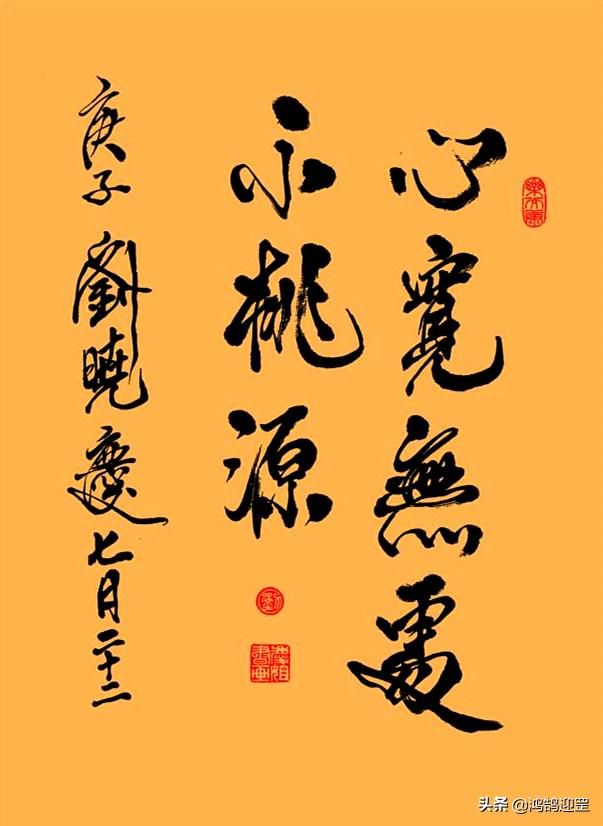 心寬無處
不桃源
庚子 劉曉慶 七月二十二
头条 @鸿鹄迎罡